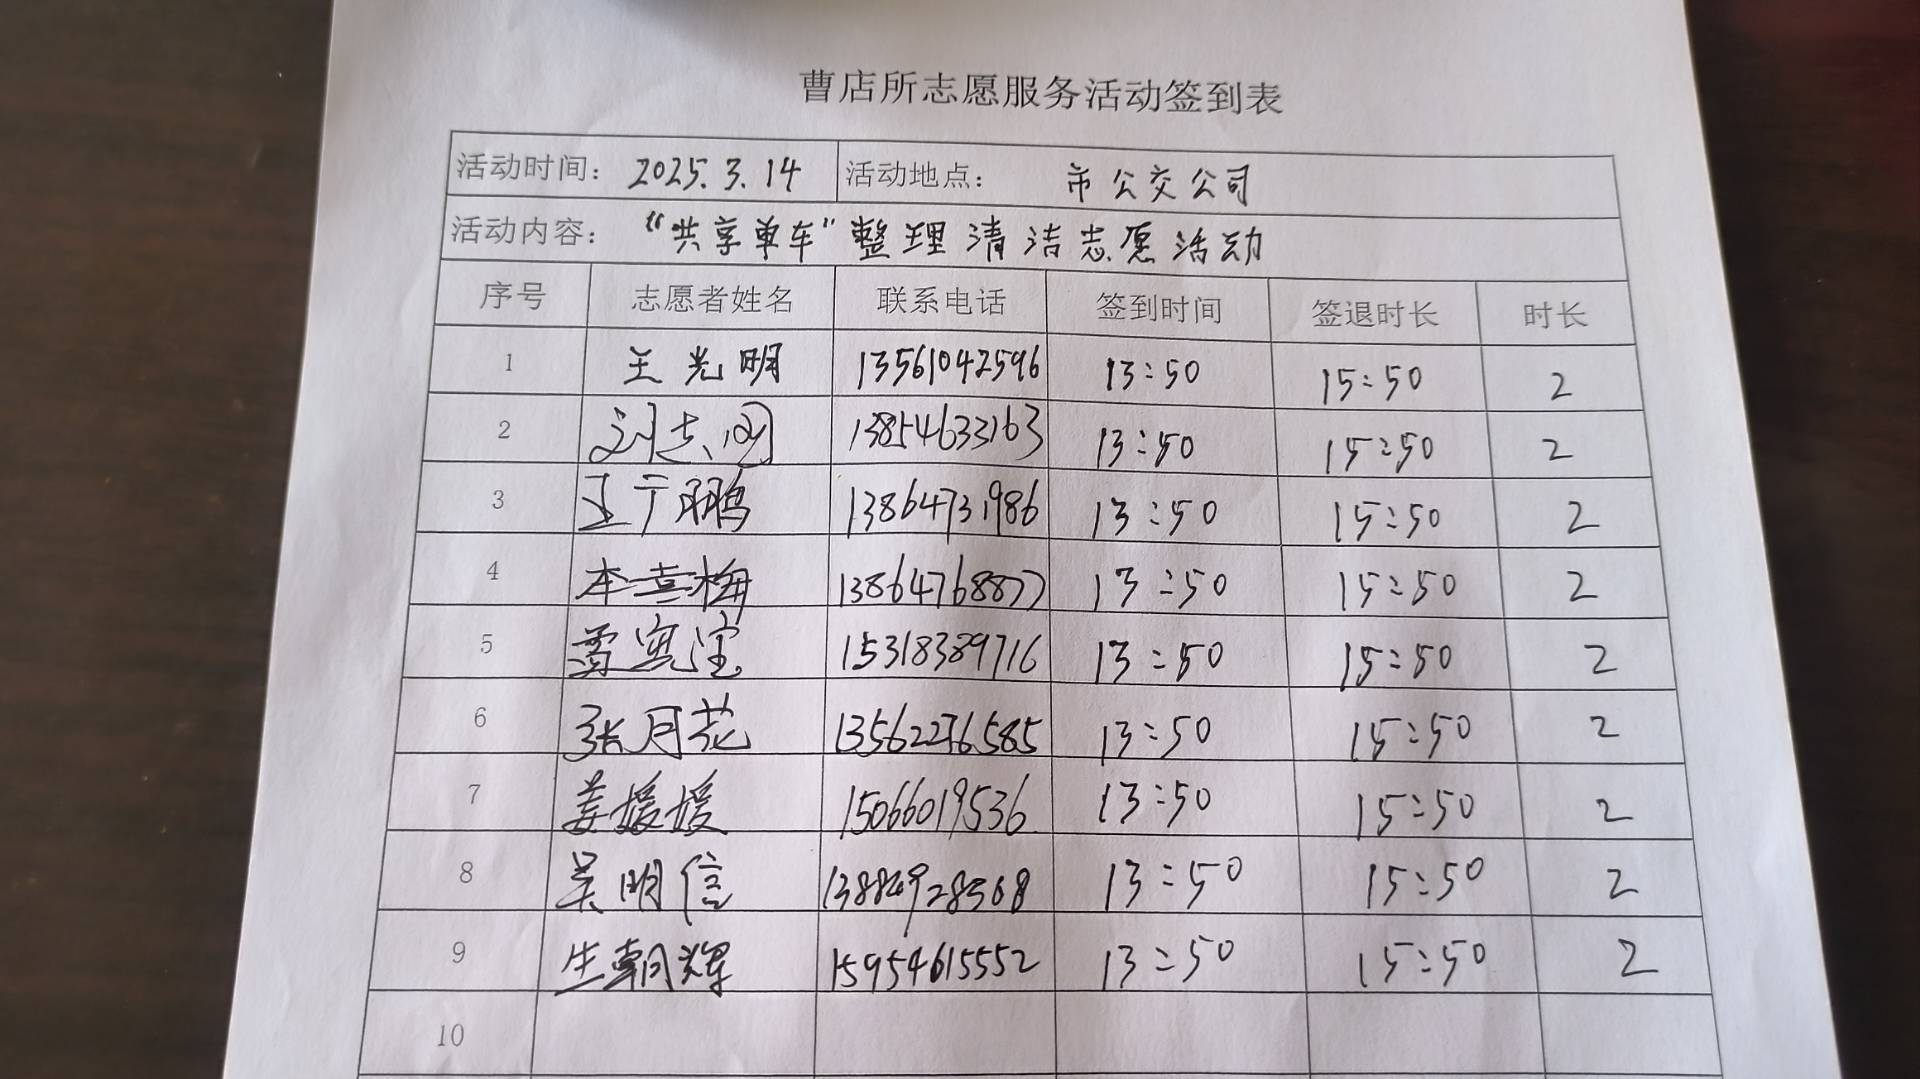 曹店所志愿服务活动签到表
活动时间: 2025.3.14 活动地点: 市公交公司
活动内容: “共享单车”整理清洁志愿活动
序号 志愿者姓名 联系电话 签到时间 签退时长 时长
1 王光明 13561042596 13:50 15:50 2
2 刘志 13854633163 13:50 15:50 2
3 王于鹏 13864731986 13:50 15:50 2
4 李喜梅 13864768877 13:50 15:50 2
5 15318389716 13:50 15:50 2
6 张月花 13562276585 13:50 15:50 2
7 姜媛媛 15066019536 13:50 15:50 2
8 吴明信 13884928568 13:50 15:50 2
9 生朝辉 15954615552 13:50 15:50 2
10